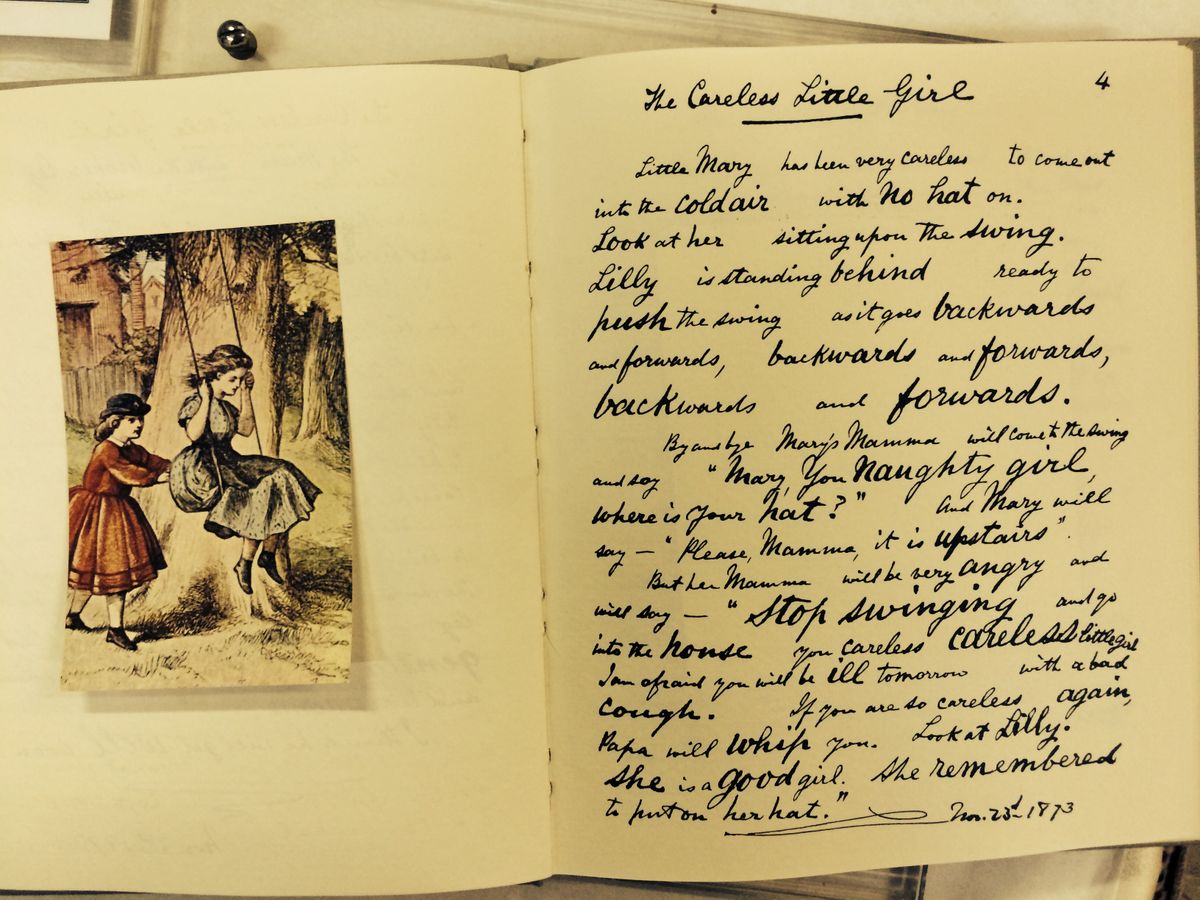 The Careless Little Girl
4
Little Mary has been very careless to come out
into the cold air with no hat on.
Look at her sitting upon the swing.
Lilly is standing behind ready to
push the swing as it goes backwards
and forwards, backwards and forwards,
backwards and forwards.
By and bye Mary's Mamma will come to the swing
and say "Mary, You naughty girl,
where is your hat?" And Mary will
say — "Please, Mamma, it is upstairs".
But her Mamma will be very angry and
will say — "Stop swinging and go
into the house you careless careless little girl
I am afraid you will be ill tomorrow with a bad
cough. If you are so careless again,
Papa will whip you. Look at Lilly.
She is a good girl. She remembered
to put on her hat."
Nov. 23d 1873